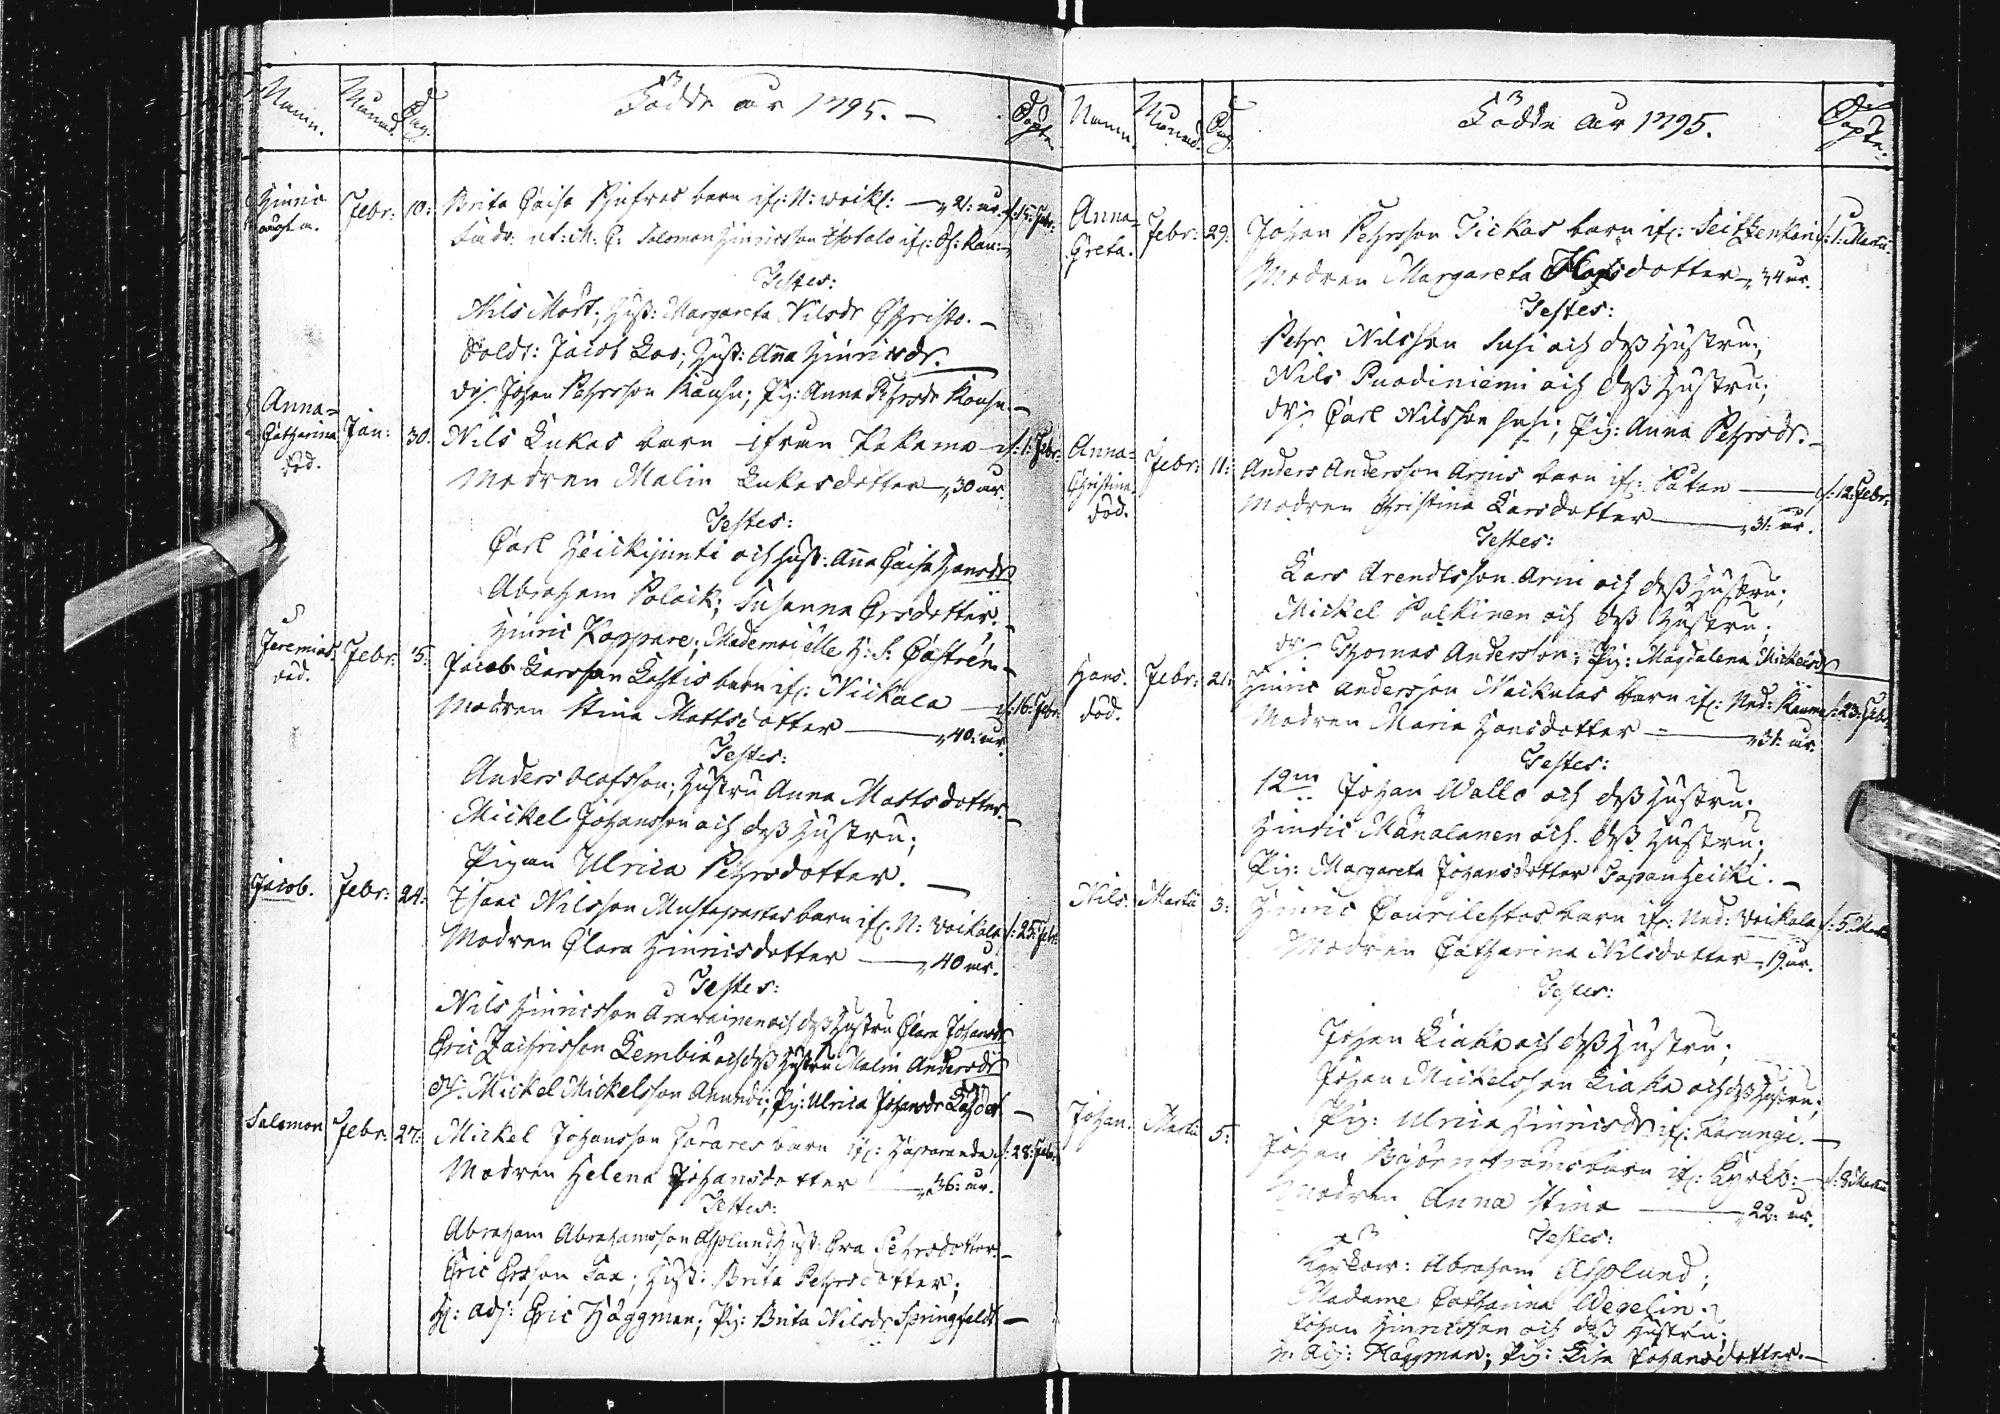 Namn. Månad Dag. Födde år 1795. — Döpte.
Hinric
Febr: 10: Brita Caisa barn if: N: woikl: — 21: år.
Salomon Hinricsson if:
Testes:
Nils Mört; Hust: Margareta Nilsdr Christo. —
Sold: Jacob Lax; Hust: Anna Hinricsdr.
Dr: Johan Pehrsson Kauhu; Pig: Anna Pehrsdr Kauhu —
Anna=
Catharina
död.
Jan: 30. Nils Lukas barn ifrån Päkama — d: 1: Febr:
Modren Malin Lukasdotter — 30 år.
Testes:
Carl Heickijunti och Hust: Anna Caisa Hansdr
Abraham Polack; Susanna Ersdotter. —
Hinric Koppare; Mademoiélle H: S: Castrén —
Jeremias.
död.
Febr: 15: Jacob Larsson Lastis barn if: Nickala — d: 16: Febr:
Modren Stina Mattsdotter — 40: år
Testes:
Anders Olofsson; Hustru Anna Mattsdotter. —
Mickel Johansson och deß Hustru;
Pigan Ulrica Pehrsdotter. —
Jacob. Febr: 24: Isaac Nilsson Mustapartas barn if: N: Voikala d: 25: Febr:
Modren Clara Hinricsdotter — 40 år.
Testes:
Nils Hinricsson och deß Hustru Clara Johansdr
Eric Zachrisson Lembiä och deß Hustru Malin Andersdr
Dr: Mickel Mickelsson Anundi; Pig: Ulrica Johansdr —
Salomon Febr: 27: Mickel Johansson barn if: Haparanda d: 28: Febr:
Modren Helena Johansdotter — 36: år.
Testes:
Abraham Abrahamsson Asplund Hust: Eva Pehrsdotter. —
Eric Ersson Sax; Hust: Brita Pehrsdotter;
H: Adj: Eric Häggman; Pig: Brita Nilsdr Springfeldt —
Namn. Månad. Dag. Födde år 1795. Döpte.
Anna=
Greta.
Febr: 29. Johan Pehrsson Tickas barn if: Seittenkari d: 1: Martii
Modren Margareta Hansdotter — 34 år.
Testes:
Pehr Nilsson Susi och deß Hustru;
Nils Puodiniemi och deß Hustru;
Dr: Carl Nilsson Susi; Pig: Anna Pehrsdr. —
Anna=
Christina
död.
Febr: 11: Anders Andersson Arnis barn if: — d: 12: Febr:
Modren Christina Larsdotter — 31: år.
Testes:
Lars Arendtsson Arni och deß Hustru;
Mickel Palkinen och deß Hustru;
Dr: Thomas Andersson; Pig: Magdalena Mickelsdr
Hans.
död.
Febr: 21: Hinric Andersson barn if: Ned: d: 23: Febr:
Modren Maria Hansdotter — 31: år.
Testes:
12m Johan Wallo och deß Hustru;
Hinric Mänalanen och deß Hustru;
Pig: Margareta Johansdotter —
Nils. Martii 3: Hinric barn if: Ned: Voikala d: 5: Martii
Modren Catharina Nilsdotter — 19. år.
Testes:
Johan Liaka och deß Hustru;
Johan Mickelsson Liaka och deß Hustru;
Pig: Ulrica Hinricsdr if: Karungi. —
Johan. Martii 5: Johan Björnströms barn if: Kyrkb: — d: 8 Martii
Modren Anna Stina — 22: år.
Testes:
Abraham Asplund;
Madame Catharina Wegelin.
Johan Hinricsson och deß Hustru;
H: Adj: Häggman; Pig: Lisa Johansdotter. —